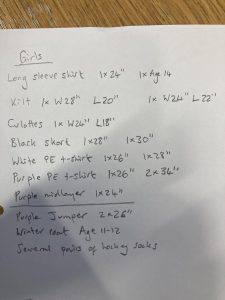 Girls
Long sleeve shirt 1x24" 1xAge 14
Kilt 1x W28" L20" 1x W24" L22"
Culottes 1x W24" L18"
Black skort 1x28" 1x30"
White PE t-shirt 1x26" 1x28"
Purple PE t-shirt 1x26" 2x34"
Purple midlayer 1x24"
Purple Jumper 2x26"
Winter coat Age 11-12
Several pairs of hockey socks